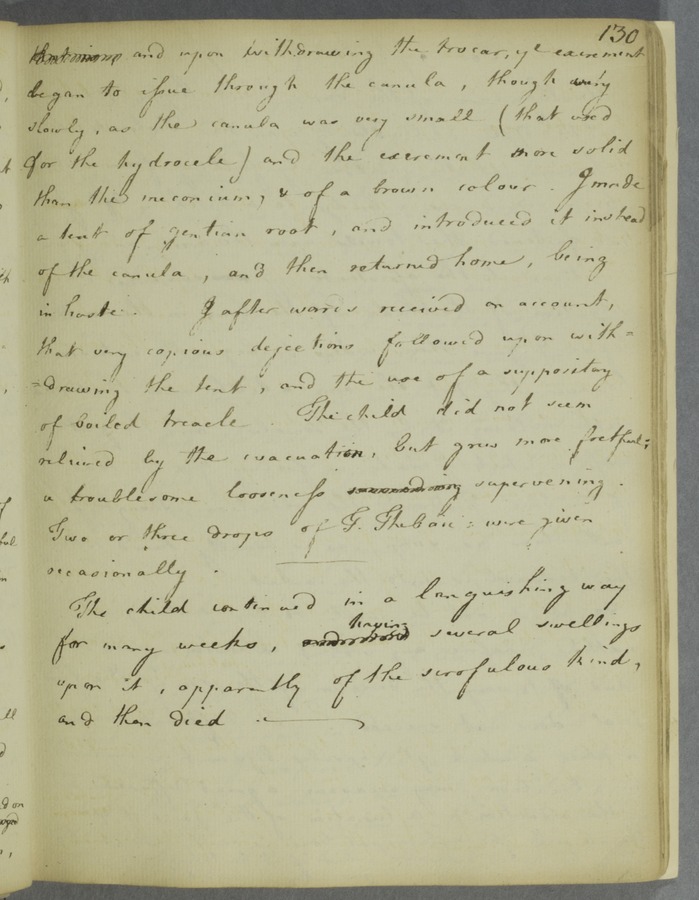 130
and upon withdrawing the trocar, ye excrement
began to issue through the canula, though very
slowly, as the canula was very small (that used
for the hydrocele) and the excrement more solid
than the meconium, & of a brown colour. I made
a tent of gentian root, and introduced it instead
of the canula, and then returned home, being
in haste. I after wards received an account,
that very copious dejections followed upon with=
=drawing the tent, and the use of a suppository
of boiled treacle. The child did not seem
relieved by the evacuation, but grew more fretful;
a troublesome looseness supervening.
Two or three drops of T. Thebaic: were given
occasionally.
The child continued in a languishing way
for many weeks, having several swellings
upon it, apparently of the scrofulous kind,
and then died.